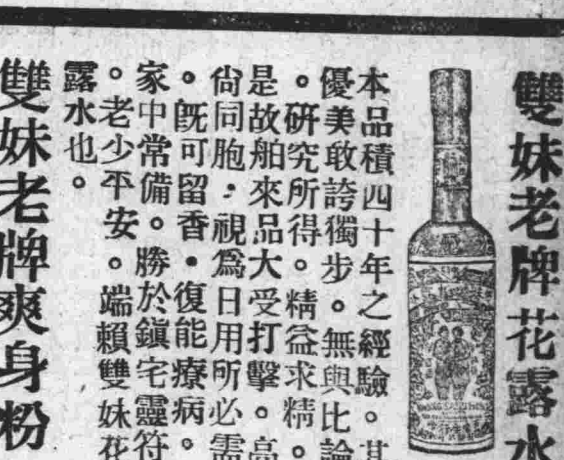 雙妹老牌花露水
本品積四十年之經驗。其
優美敢誇獨步。無與比論
。研究所得。精益求精。
是故舶來品大受打擊。高
尙同胞。視爲日用所必需
。旣可留香。復能療病。
家中常備。勝於鎭宅靈符
。老少平安。端賴雙妹花
露水也。
雙妹老牌爽身粉